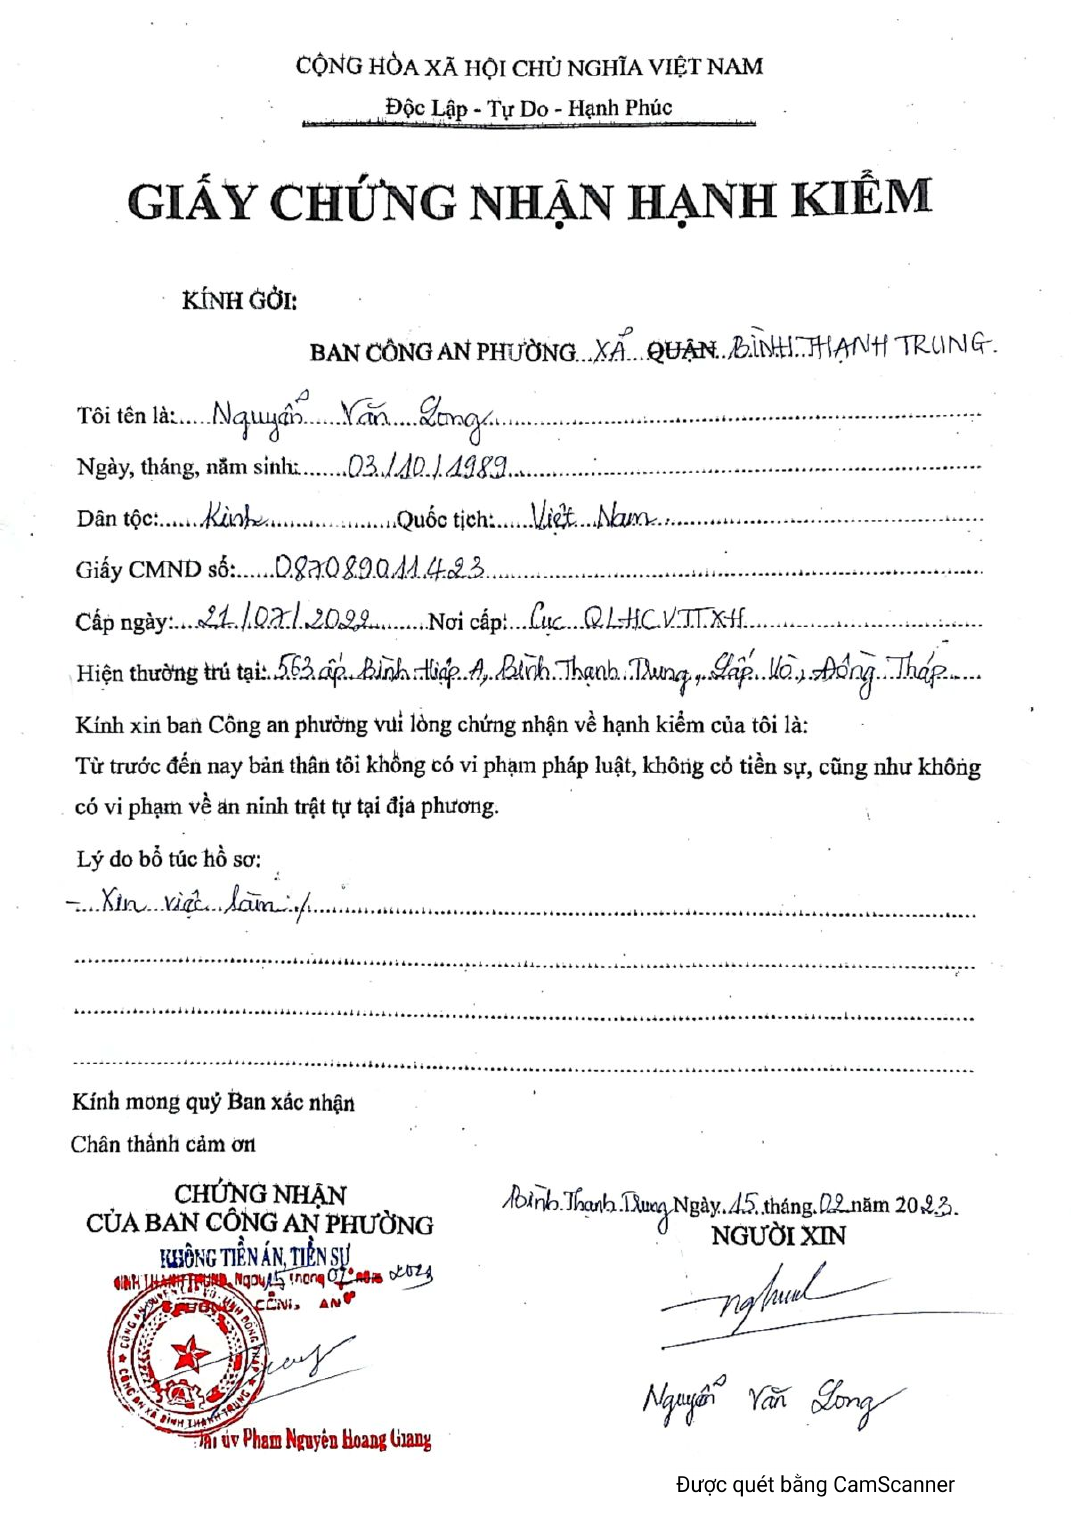 CỘNG HÒA XÃ HỘI CHỦ NGHĨA VIỆT NAM
Độc Lập - Tự Do - Hạnh Phúc
GIẤY CHỨNG NHẬN HẠNH KIỂM
KÍNH GỞI:
BAN CÔNG AN PHƯỜNG XÃ QUẬN BÌNH THẠNH TRUNG.
Tôi tên là: Nguyễn Văn Long
Ngày, tháng, năm sinh: 03/10/1989
Dân tộc: Kinh Quốc tịch: Việt Nam
Giấy CMND số: 087089011423
Cấp ngày: 21/07/2022 Nơi cấp: Cục QLHCVTTXH
Hiện thường trú tại: 563 ấp Bình Hiệp A, Bình Thạnh Trung, Lấp Vò, Đồng Tháp
Kính xin ban Công an phường vui lòng chứng nhận về hạnh kiểm của tôi là:
Từ trước đến nay bản thân tôi không có vi phạm pháp luật, không có tiền sự, cũng như không
có vi phạm về an ninh trật tự tại địa phương.
Lý do bổ túc hồ sơ:
- Xin việc làm ./
Kính mong quý Ban xác nhận
Chân thành cảm ơn
CHỨNG NHẬN
CỦA BAN CÔNG AN PHƯỜNG
KHÔNG TIỀN ÁN, TIỀN SỰ
BÌNH THẠNH TRUNG, Ngày 15 tháng 02 năm 2023
CÔNG AN
CÔNG AN XÃ BÌNH THẠNH TRUNG
Đại úy Phạm Nguyên Hoang Giang
Bình Thạnh Trung Ngày 15 tháng 02 năm 2023.
NGƯỜI XIN
Nguyễn Văn Long
Được quét bằng CamScanner